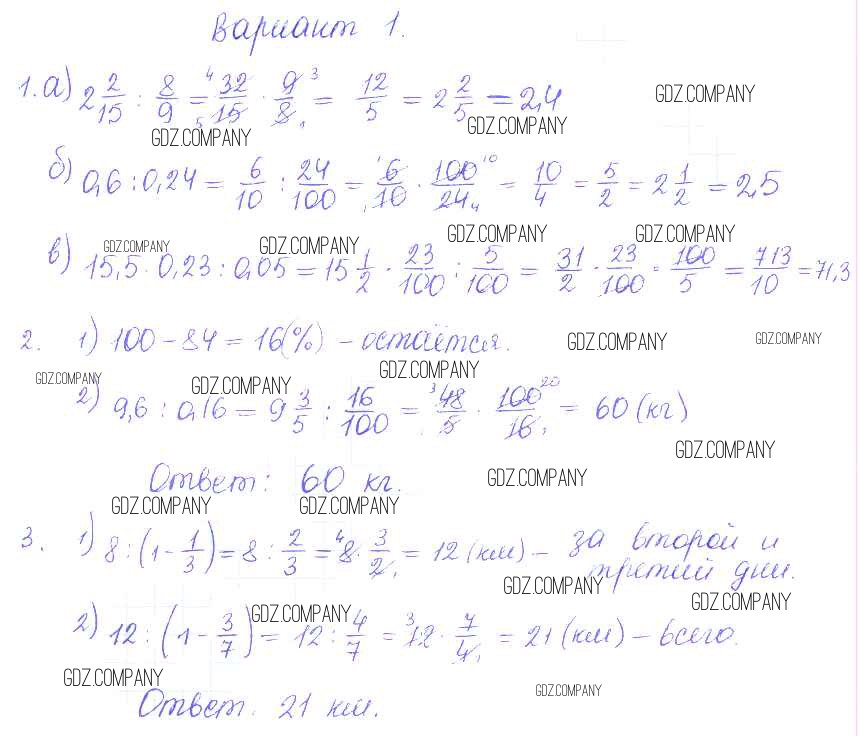 Вариант 1.
1. а) 2 2/15 : 8/9 = 32/15 · 9/8 = 12/5 = 2 2/5 = 2,4
GDZ.COMPANY GDZ.COMPANY GDZ.COMPANY
б) 0,6 : 0,24 = 6/10 : 24/100 = 6/10 · 100/24 = 10/4 = 5/2 = 2 1/2 = 2,5
GDZ.COMPANY GDZ.COMPANY GDZ.COMPANY GDZ.COMPANY
в) 15,5 · 0,23 : 0,05 = 15 1/2 · 23/100 : 5/100 = 31/2 · 23/100 · 100/5 = 713/10 = 71,3
2. 1) 100 – 84 = 16(%) – остаётся.
GDZ.COMPANY GDZ.COMPANY
GDZ.COMPANY GDZ.COMPANY GDZ.COMPANY
2) 9,6 : 0,16 = 9 3/5 : 16/100 = 48/5 · 100/16 = 60 (кг)
GDZ.COMPANY
Ответ: 60 кг.
GDZ.COMPANY
GDZ.COMPANY GDZ.COMPANY
3. 1) 8 : (1 - 1/3) = 8 : 2/3 = 8 · 3/2 = 12 (км) – за второй и
третий дни.
GDZ.COMPANY GDZ.COMPANY
GDZ.COMPANY
2) 12 : (1 - 3/7) = 12 : 4/7 = 12 · 7/4 = 21 (км) – всего.
GDZ.COMPANY GDZ.COMPANY
Ответ: 21 км.